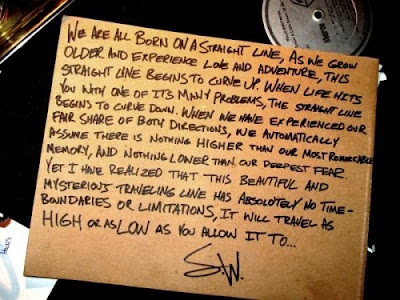 WE ARE ALL BORN ON A STRAIGHT LINE, AS WE GROW
OLDER AND EXPERIENCE LOVE AND ADVENTURE, THIS
STRAIGHT LINE BEGINS TO CURVE UP. WHEN LIFE HITS
YOU WITH ONE OF ITS MANY PROBLEMS, THE STRAIGHT LINE
BEGINS TO CURVE DOWN. WHEN WE HAVE EXPERIENCED OUR
FAIR SHARE OF BOTH DIRECTIONS, WE AUTOMATICALLY
ASSUME THERE IS NOTHING HIGHER THAN OUR MOST REMARKABLE
MEMORY, AND NOTHING LOWER THAN OUR DEEPEST FEAR.
YET I HAVE REALIZED THAT THIS BEAUTIFUL AND
MYSTERIOUS TRAVELING LINE HAS ABSOLUTELY NO TIME-
BOUNDARIES OR LIMITATIONS, IT WILL TRAVEL AS
HIGH OR AS LOW AS YOU ALLOW IT TO...
S.W.